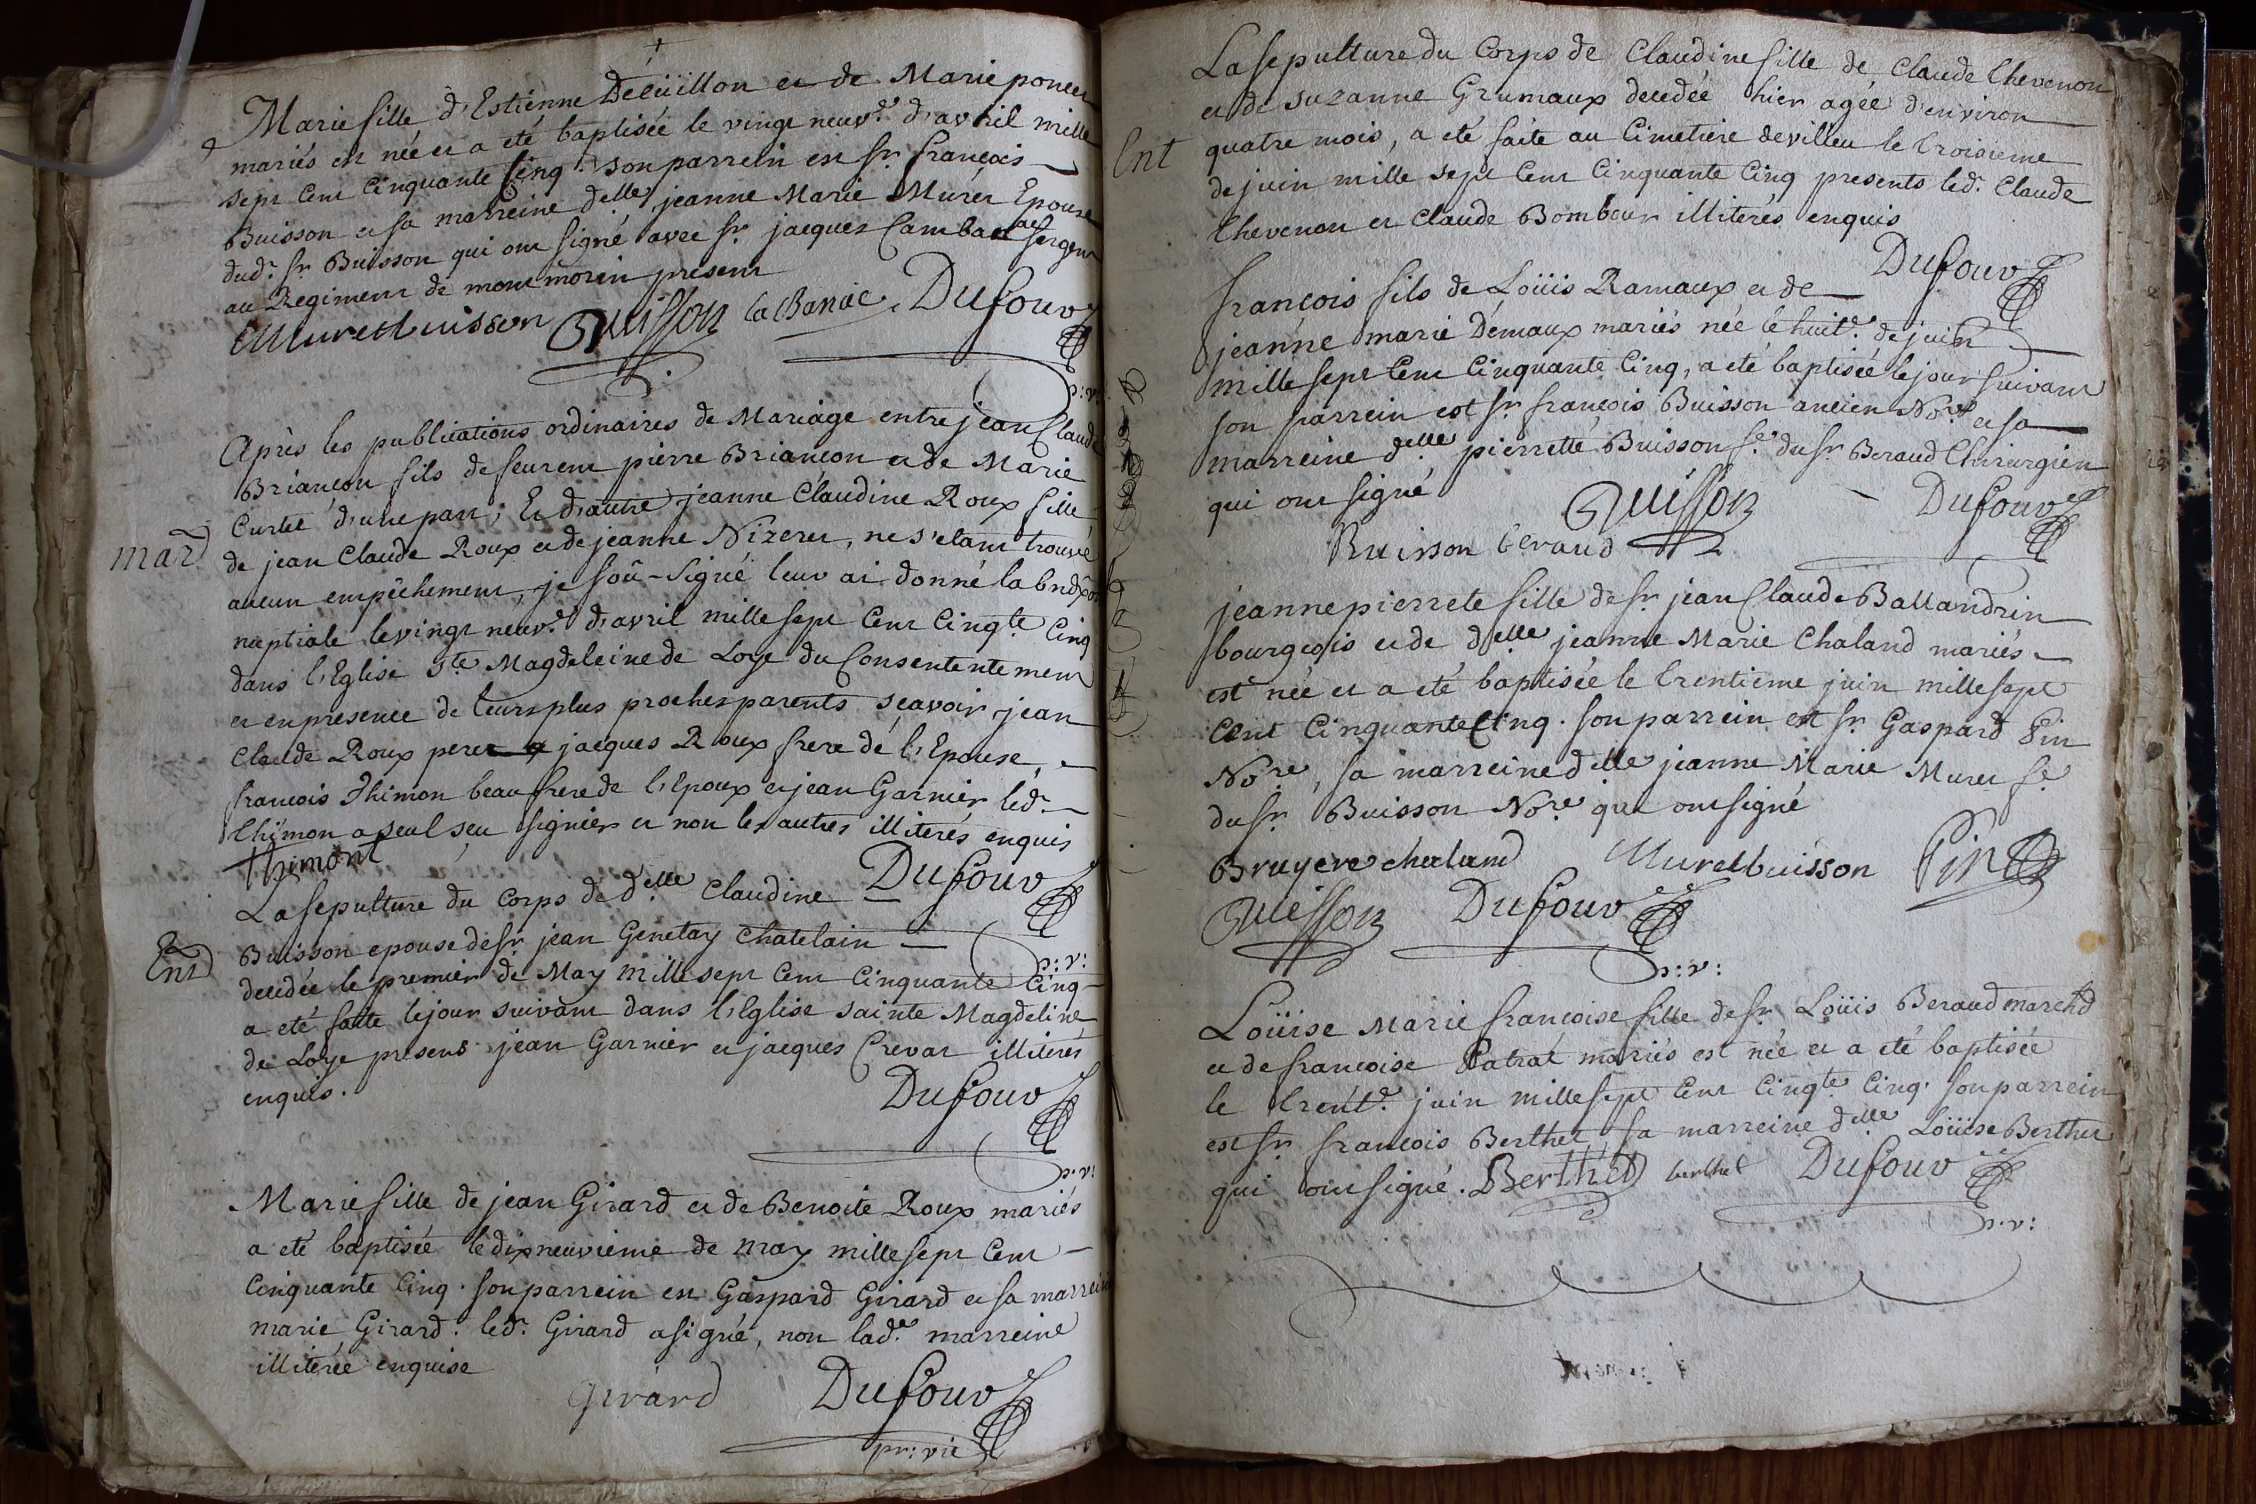 Marie fille d'Estienne Decüillon et de Marie poncet
mariés est née et a eté baptisée le vingt neuv.e d'avril mille
sept cent cinquante cinq. son parrein est sr. francois
Buisson et sa marreine delle jeanne Marie Muret Epouse
dud. sr. Buisson qui ont signé avec sr. jacques sergent
au Regiment de montmorin present
Muret buisson Buisson la Banac Dufour
p: v:
Après les publications ordinaires de Mariage entre jean Claude
Briancon fils de feu rent pierre Briancon et de Marie
Curtet d'une part, Et d'autre jeanne Claudine Roux fille
mar
de jean Claude Roux et de jeanne Nizeret, ne s'etant trouvé
aucun empêchement, je soû-signé leur ai donné la bndxon
nuptiale le vingt neuv.e d'avril mille sept cent cinq.te cinq
dans l'Eglise S.te Magdeleine de Loye du Consententement
et en presence de leurs plus proches parents sçavoir jean
Claude Roux pere et jacques Roux frere de l'Epouse,
francois Thimon beau frere de l'Epoux et jean Garnier led.
thimon a seul sçu signer et non les autres illiterés enquis
Thimont Dufour
La sepulture du Corps de d.elle Claudine
Ent
Buisson epouse de sr. jean Genetay Chatelain
p: v:
decedée le premier de May mille sept cent cinquante cinq
a eté faite le jour suivant dans l'Eglise sainte Magdeline
de Loye presens jean Garnier et jacques Crevat illiterés
enquis.
Dufour
p: v:
Marie fille de jean Girard et de Benoite Roux mariés
a eté baptisée le dix neuvieme de may mille sept cent
cinquante cinq. son parrein est Gaspard Girard et sa marreine
marie Girard. led. Girard a signé, non lad.e marreine
illiterée enquise
girard Dufour
pr: vic
La sepulture du Corps de Claudine fille de Claude Chevenon
et de suzanne Grumaux decedée hier agée d'environ
Ent
quatre mois, a eté faite au Cimetiere de villeu le troisieme
de juin mille sept cent cinquante cinq presents led. Claude
Chevenon et Claude Bombour illiterés enquis
Dufour
francois fils de Loüis Ramaux et de
jeanne marie Démaux mariés née le huit.e de juin
mille sept cent cinquante cinq, a eté baptisée le jour suivant
son parrein est sr. francois Buisson ancien No.re et sa
marreine d.elle pierrette Buisson f.e du sr. Beraud Chirurgien
qui ont signé
Buisson Dufour
Buisson beraud
jeanne pierrete fille de sr. jean Claude Ballandrin
bourgeois et de d.elle jeanne Marie Chaland mariés
est née et a eté baptisée le trentieme juin mille sept
cent cinquante cinq. son parrein est sr. Gaspard Pin
No.re, sa marreine d.elle jeanne Marie Muret f.e
du sr. Buisson No.re qui ont signé
Bruyere chaland Muret buisson Pin
Buisson Dufour
p: v:
Loüise Marie francoise fille de sr. Loüis Beraud march.d
et de francoise Patrat mariés est née et a eté baptisée
le trent.e juin mille sept cent cinq.te cinq. son parrein
est sr. francois Berthet, sa marreine d.elle Loüise Berthet
qui ont signé. Berthet berthet Dufour
p: v: